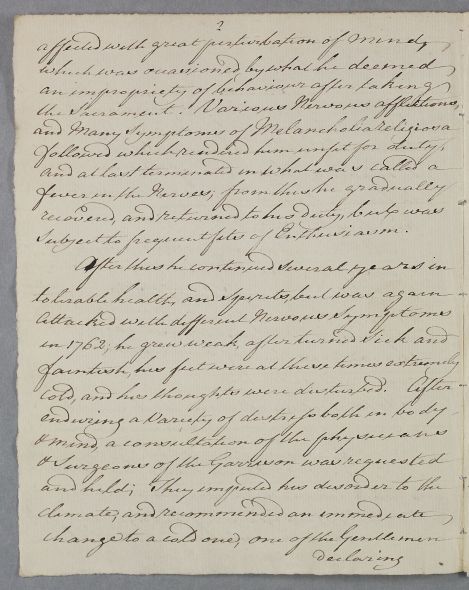 2
affected with great perturbation of mind,
which was occasioned by what he deemed
an impropriety of behaviour after taking
the Sacrament. Various Nervous afflictions,
and Many Symptoms of Melancholia religiosa
followed which rendered him unfit for duty,
and at last terminated in what was called a
fever in the Nerves; from this he gradually
recovered, and returned to his duty, but was
Subject to frequent fits of Enthusiasm.
After this he continued several years in
tolerable health, and Spirits, but was again
attacked with different Nervous Symptoms
in 1762; he grew weak, after turned Sick and
faintish, his feet were at these times extremely
Cold, and his thoughts were disturbed. After
enduring a Variety of distress both in body
& mind, a consultation of the physicians
& Surgeons of the Garrison was requested
and held; They imputed his disorder to the
climate, and recommended an immediate
change to a cold one, one of the Gentlemen
declaring